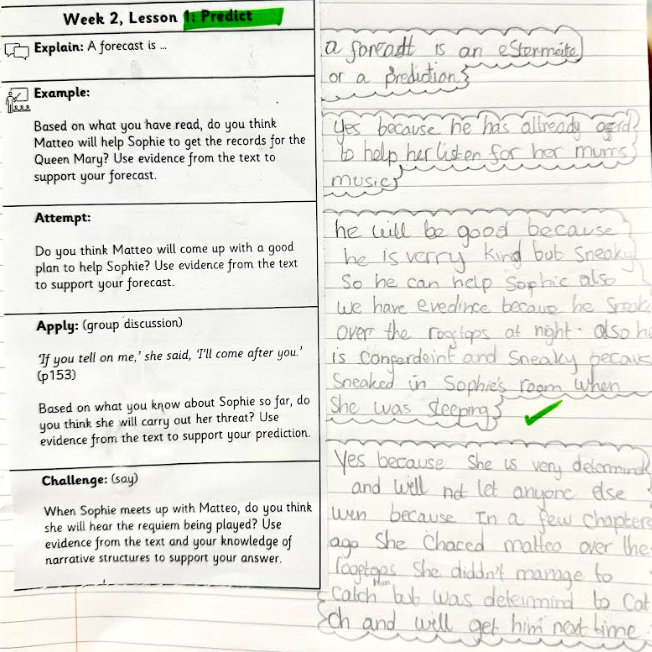 Week 2, Lesson 1: Predict
Explain: A forecast is ...
Example:
Based on what you have read, do you think
Matteo will help Sophie to get the records for the
Queen Mary? Use evidence from the text to
support your forecast.
Attempt:
Do you think Matteo will come up with a good
plan to help Sophie? Use evidence from the text
to support your forecast.
Apply: (group discussion)
'If you tell on me,' she said, 'I'll come after you.'
(p153)
Based on what you know about Sophie so far, do
you think she will carry out her threat? Use
evidence from the text to support your prediction.
Challenge: (say)
When Sophie meets up with Matteo, do you think
she will hear the requiem being played? Use
evidence from the text and your knowledge of
narrative structures to support your answer.
a foreadt is an estermeite
or a prediction
Yes because he has allready
to help her listen for her mums
music
he will be good because
he is verry kind but sneaky
So he can help Sophie also
we have evedince becaue he
over the at night. also he
is and sneaky becaus
Sneaked in Sophie's room when
She was sleeping
Yes because She is very determind
and will not let anyone else
wen because In a few chapters
ago She Chaced matteo over the
She diddn't manage to
Catch him but was determind to Cat
ch and will get him next time.